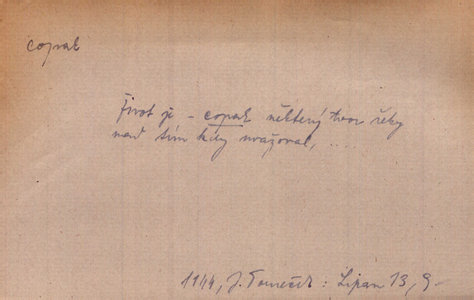 copak
Život je – copak některý tvor řeky
nad tím kdy uvažoval, ....
1944, J. Tomeček: Lipan 13, 9